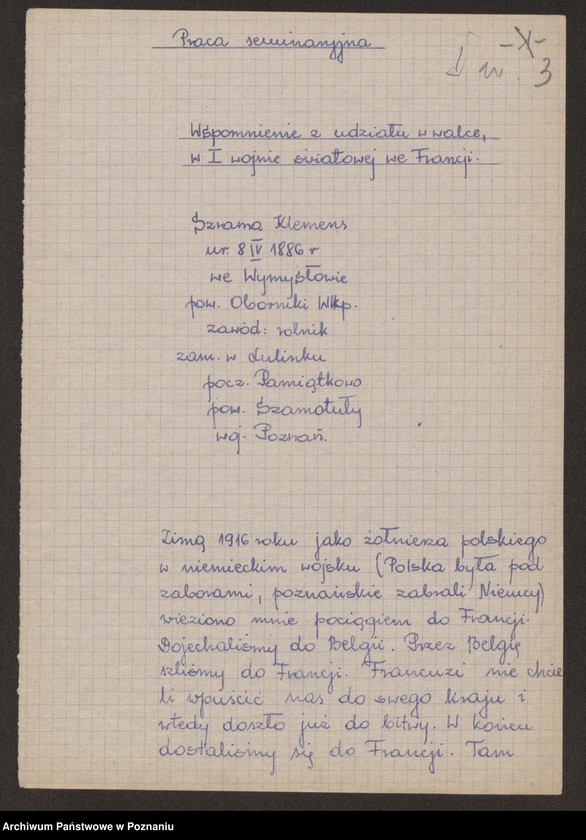 Praca seminaryjna
-X-
3
Wspomnienie z udziału w walce,
w I wojnie światowej we Francji.
Szrama Klemens
ur. 8 IV 1886 r
we Wymysłowie
pow. Oborniki Wlkp.
zawód: rolnik
zam. w Lulinku
pocz. Pamiątkowo
pow. Szamotuły
woj. Poznań.
Zimą 1916 roku jako żołnierza polskiego
w niemieckim wojsku (Polska była pod
zaborami, poznańskie zabrali Niemcy)
wieziono mnie pociągiem do Francji.
Dojechaliśmy do Belgii. Przez Belgię
szliśmy do Francji. Francuzi nie chcie
li wpuścić nas do swego kraju i
wtedy doszło już do bitwy. W końcu
dostaliśmy się do Francji. Tam
Archiwum Państwowe w Poznaniu